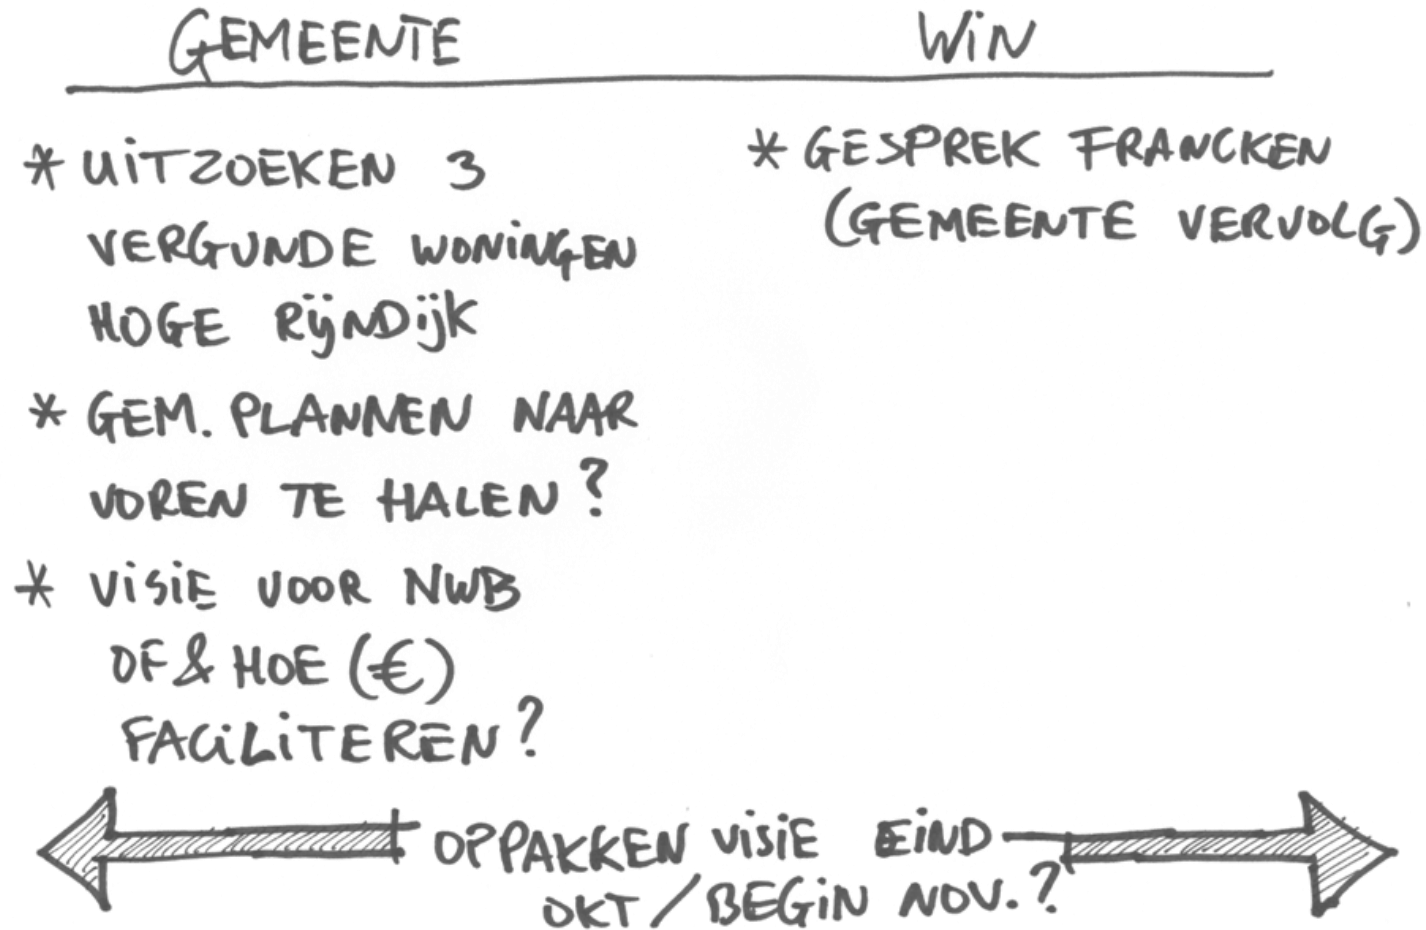 GEMEENTE
WIN
* UITZOEKEN 3
VERGUNDE WONINGEN
HOGE RIJNDIJK
* GEM. PLANNEN NAAR
VOREN TE HALEN?
* VISIE VOOR NWB
OF & HOE (€)
FACILITEREN?
* GESPREK FRANCKEN
(GEMEENTE VERVOLG)
OPPAKKEN VISIE EIND
OKT / BEGIN NOV.?